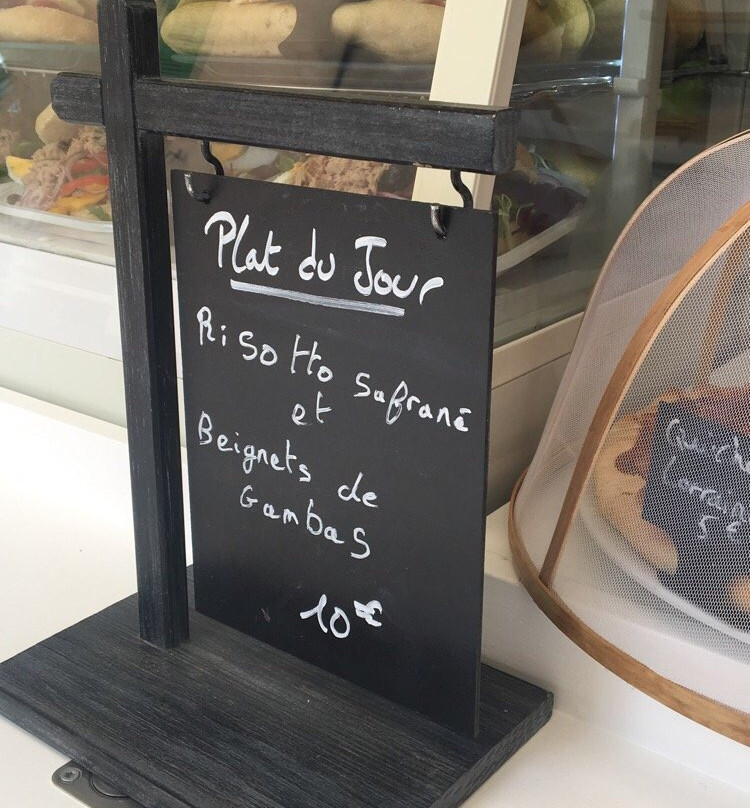 Plat du Jour
Risotto Safrané
et
Beignets de
Gambas
10€
Quiche
Lorraine
5€